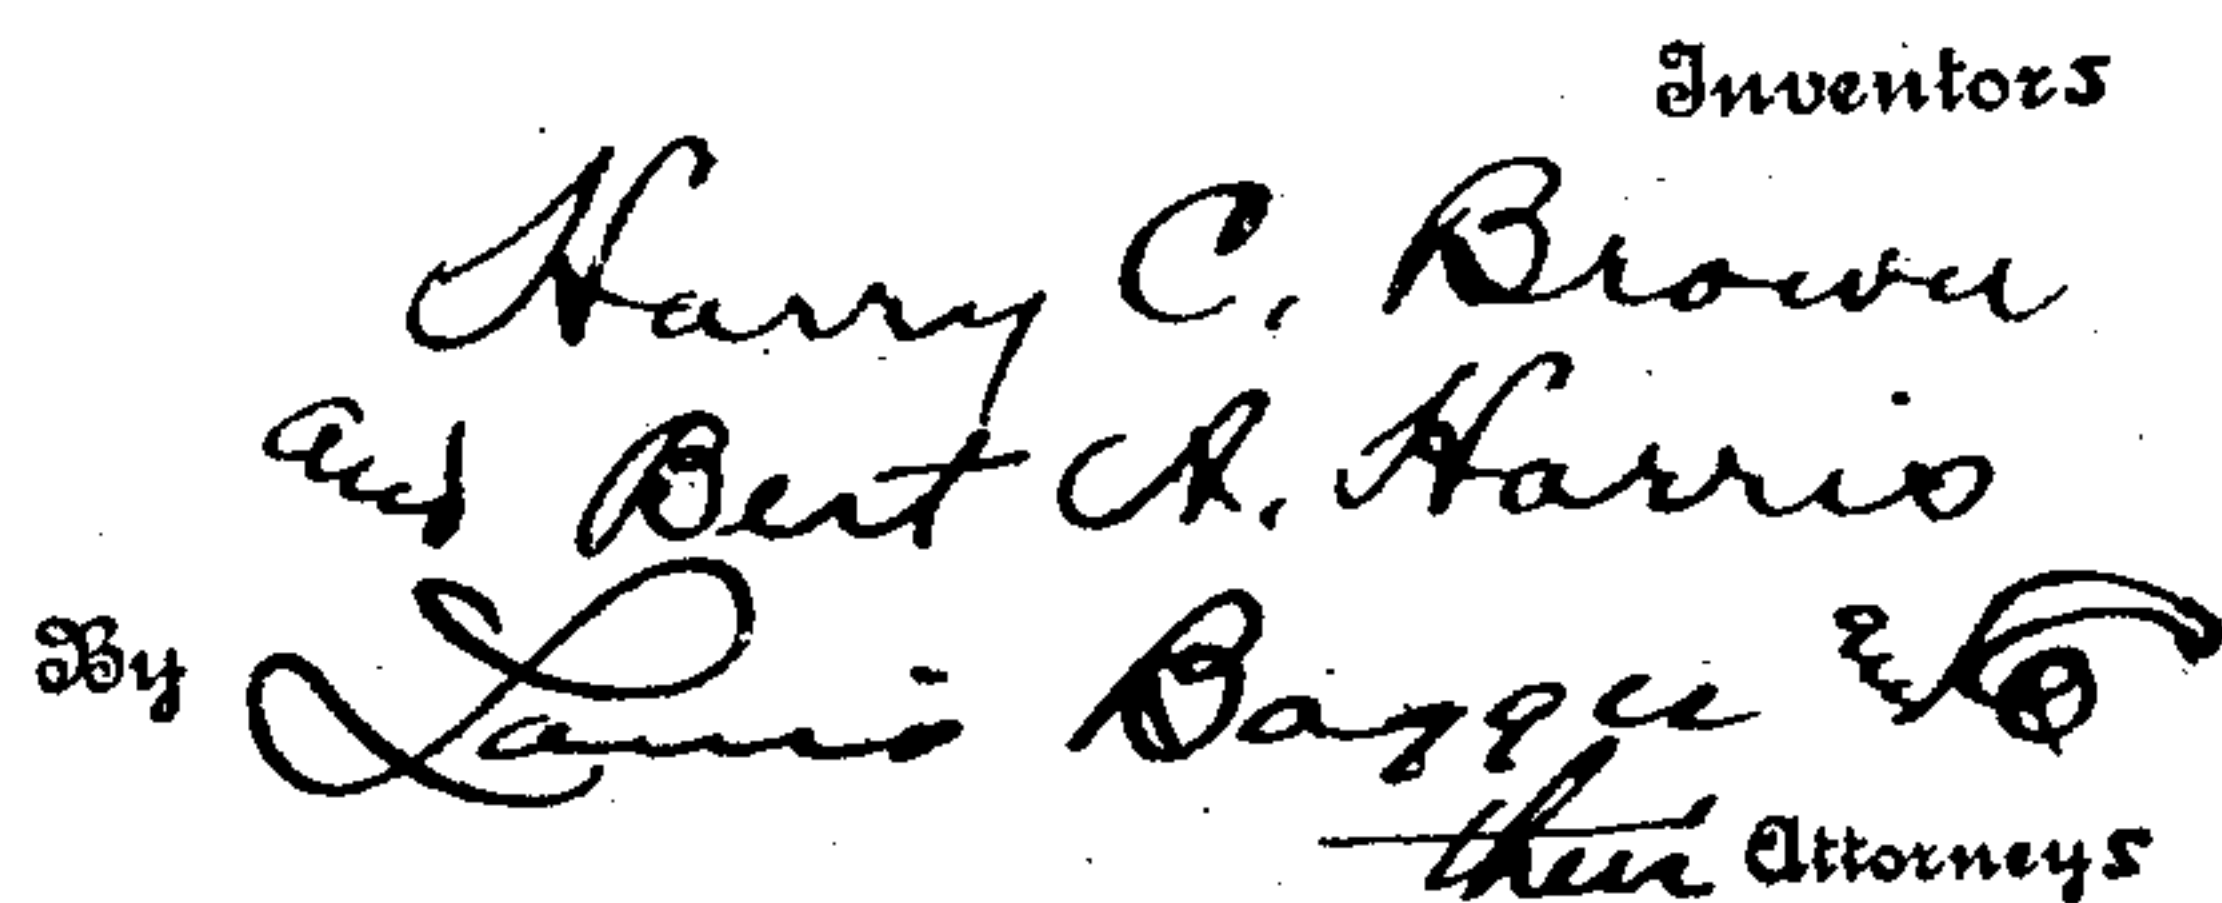 Inventors
Harry C. Brown
and Bert A. Harris
By Louis Bagger & Co
their Attorneys